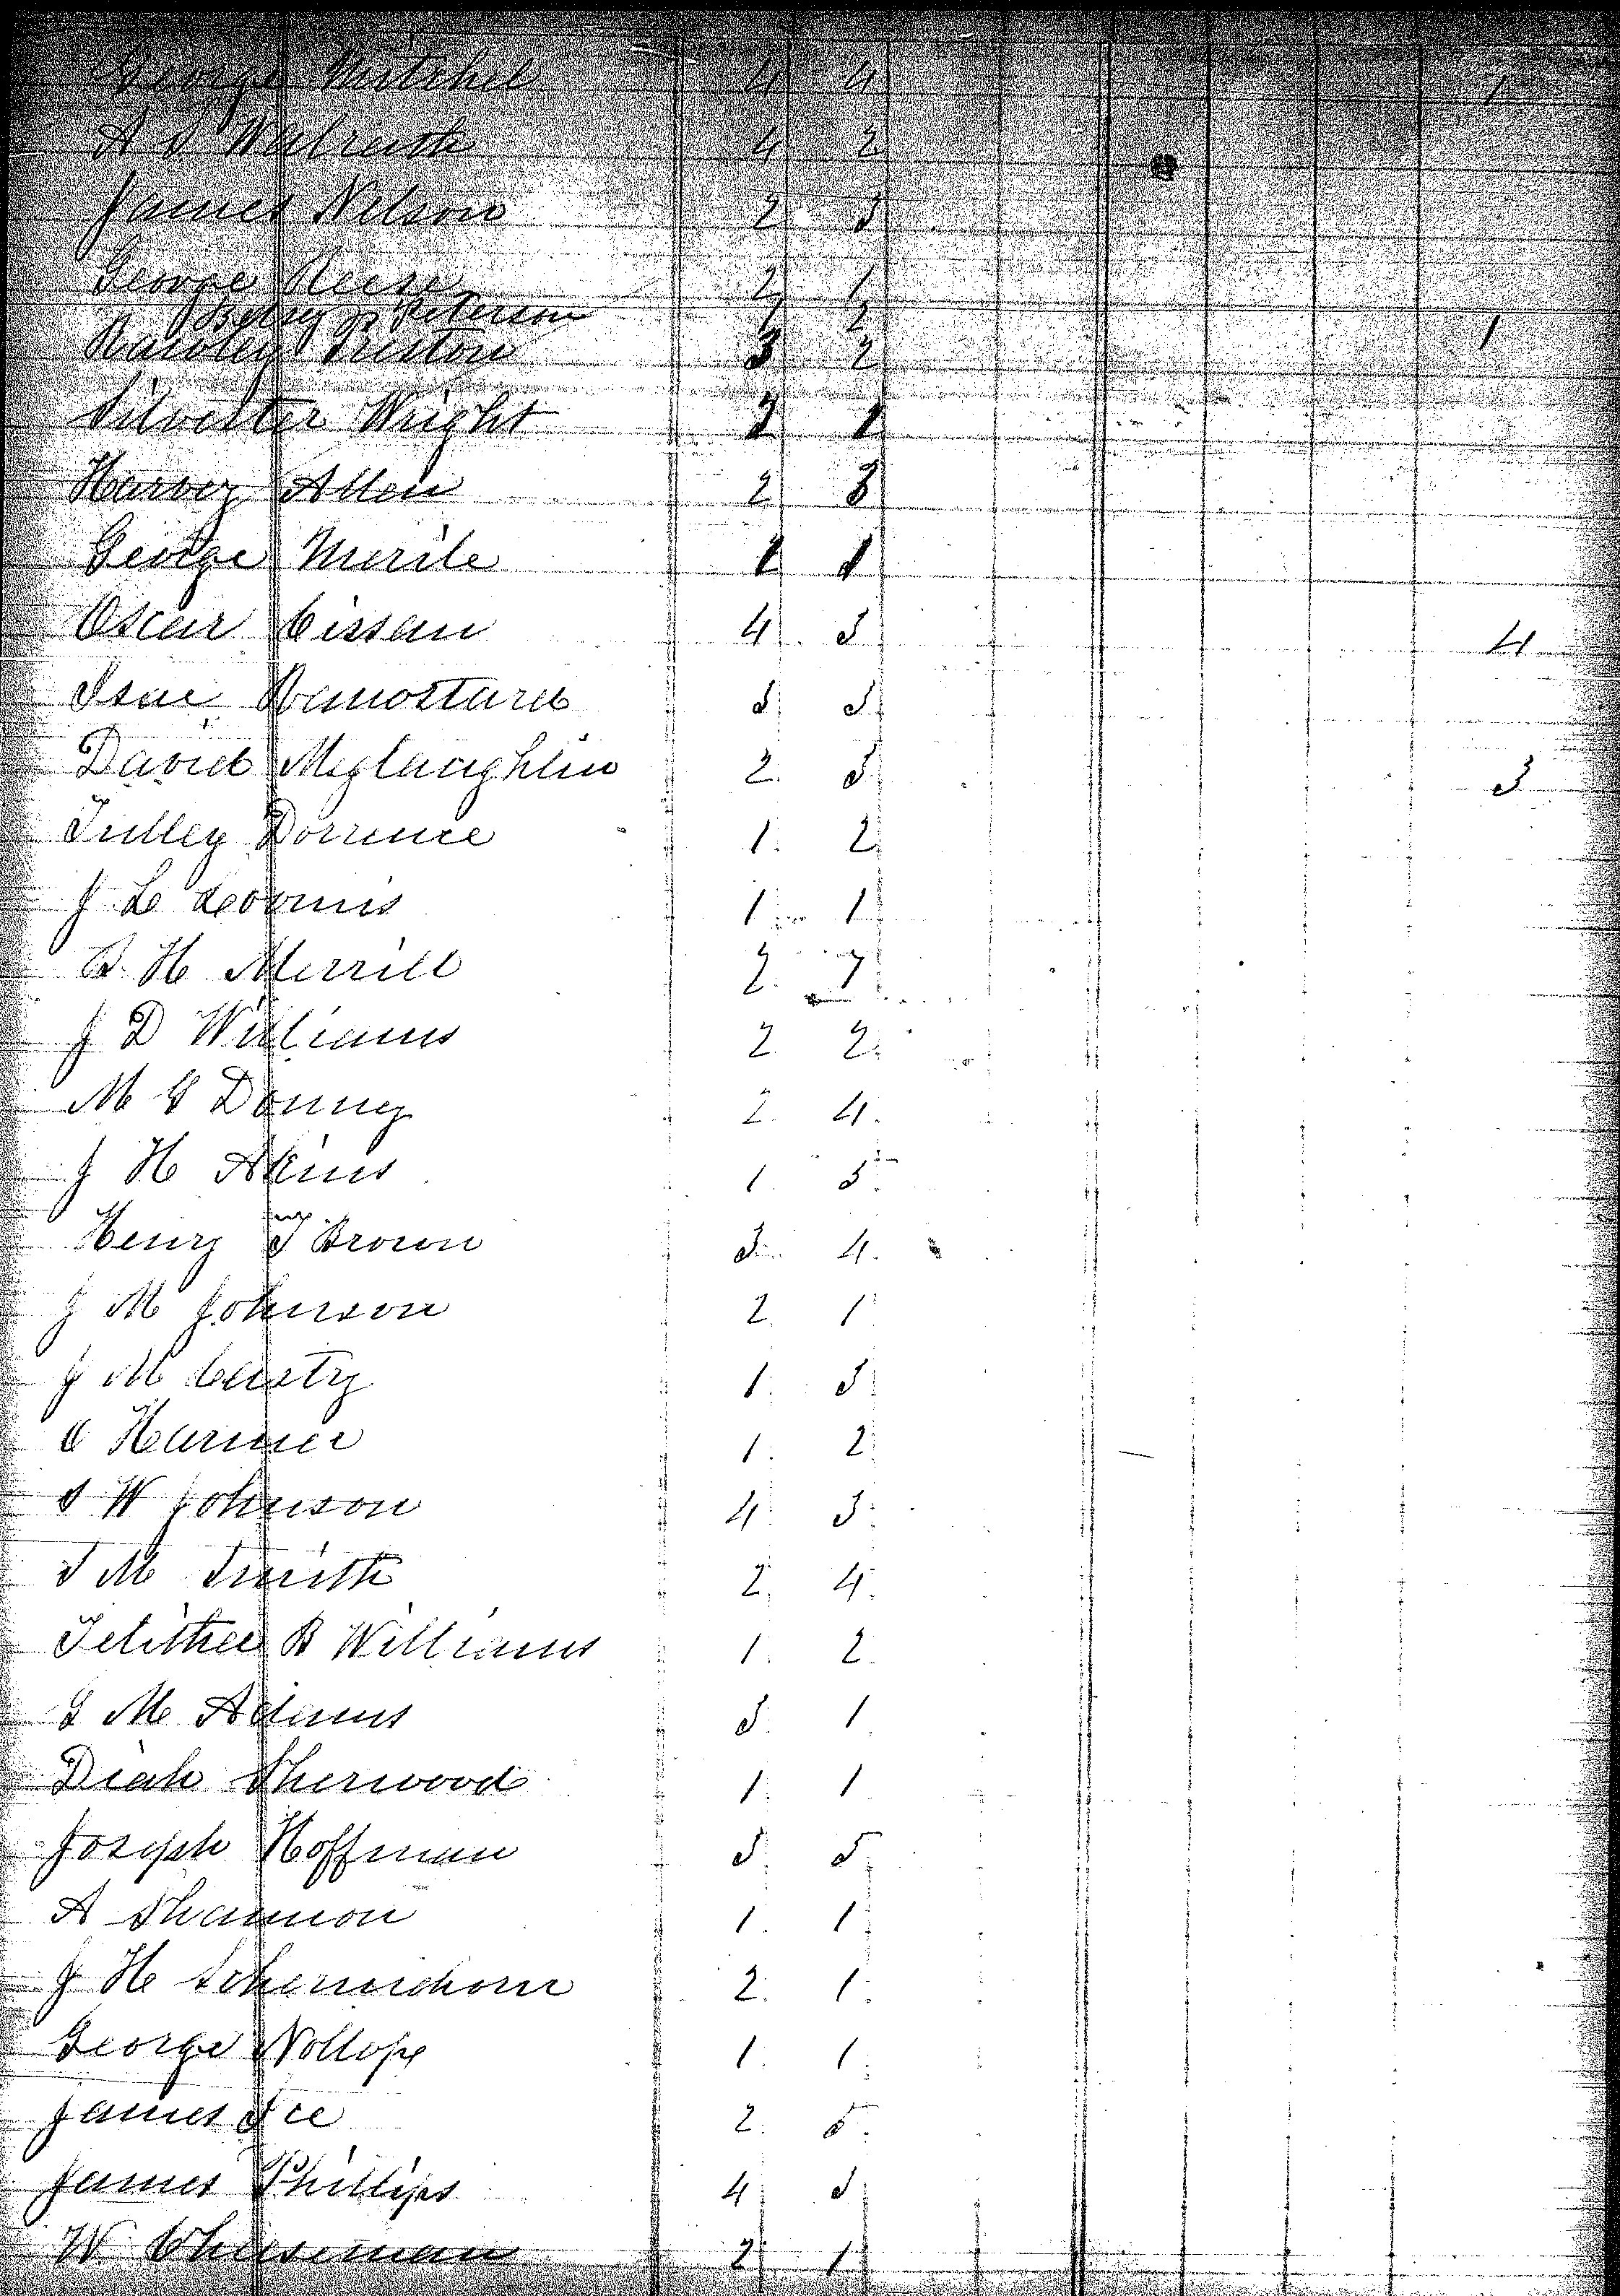 George Mitchel 4 4 1
A S Walruth 4 2
James Nelson 2 3
George Reese 2 1
Betsey Peterson 1 2
Rawley Preston 3 2 1
Silvester Wright 2 1
Harvey Allen 2 3
George Merile 1 1
Oscar Cissau 4 3 4
Isac 3 3
David Mcglaughlin 2 3 3
Tulley Dorrence 1 2
J L Loomis 1 1
B H Merrill 2 7
J D Williams 2 2
M G Donney 2 4
J H Akins 1 5
Henry T Brown 3 4
J M Johnson 2 1
J M Casty 1 3
C Harmer 1 2
S W Johnson 4 3
S M Smith 2 4
Telithee B Williams 1 2
G M Adams 3 1
Diah Sherwood 1 1
Joseph Hoffman 3 5
A Shannon 1 1
J H Schermerhorn 2 1
George Nollop 1 1
James Ice 2 5
James Phillips 4 3
W Cheeseman 2 1